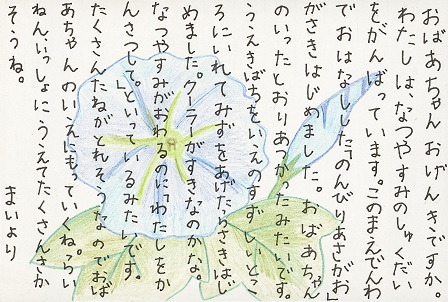 おばあちゃん おげんきですか。
わたしは、なつやすみのしゅくだい
をがんばっています。このまえでんわ
でおはなしした「のんびりあさがお」
がさきはじめました。おばあちゃん
のいったとおりあつかったみたいです。
うえきばちをいえのすずしいとこ
ろにいれてみずをあげたらさきはじ
めました。クーラーがすきなのかな。
なつやすみがおわるのに「わたしをか
んさつして。」といっているみたいです。
たくさんたねがとれそうだのでおば
あちゃんのいえにもっていくね。らい
ねん、いっしょにうえてたくさんさか
そうね。
まいより